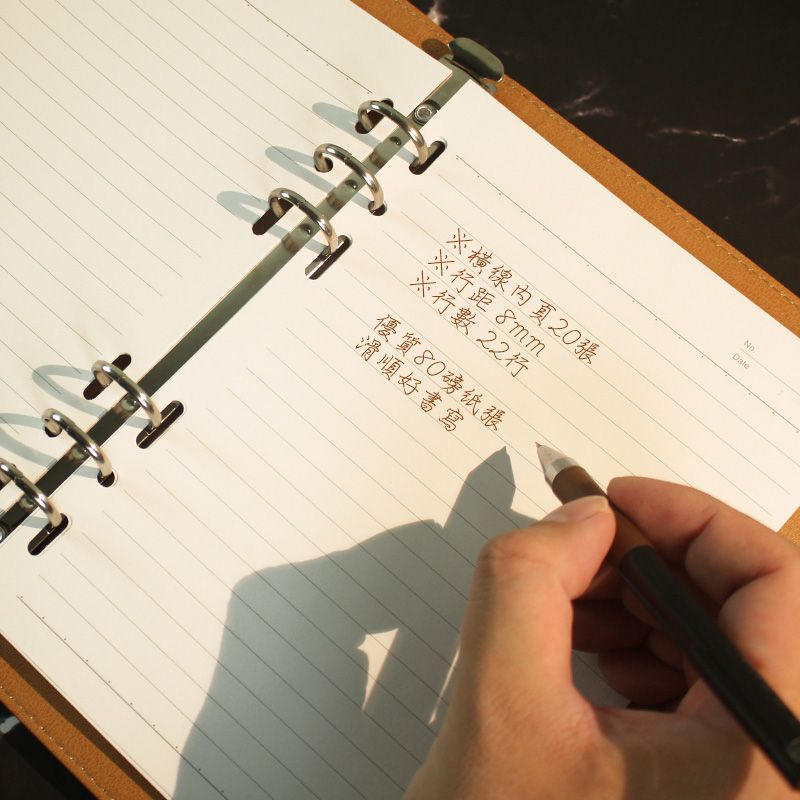 No.
Date
※橫線內頁20張
※行距 8mm
※行數 22行
優質80磅紙張
滑順好書寫